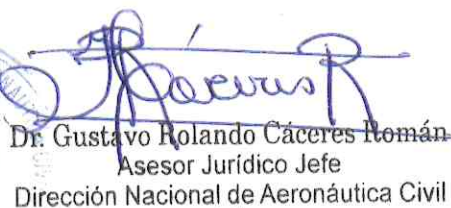 Cáceres R
Dr. Gustavo Rolando Cáceres Román
Asesor Jurídico Jefe
Dirección Nacional de Aeronáutica Civil